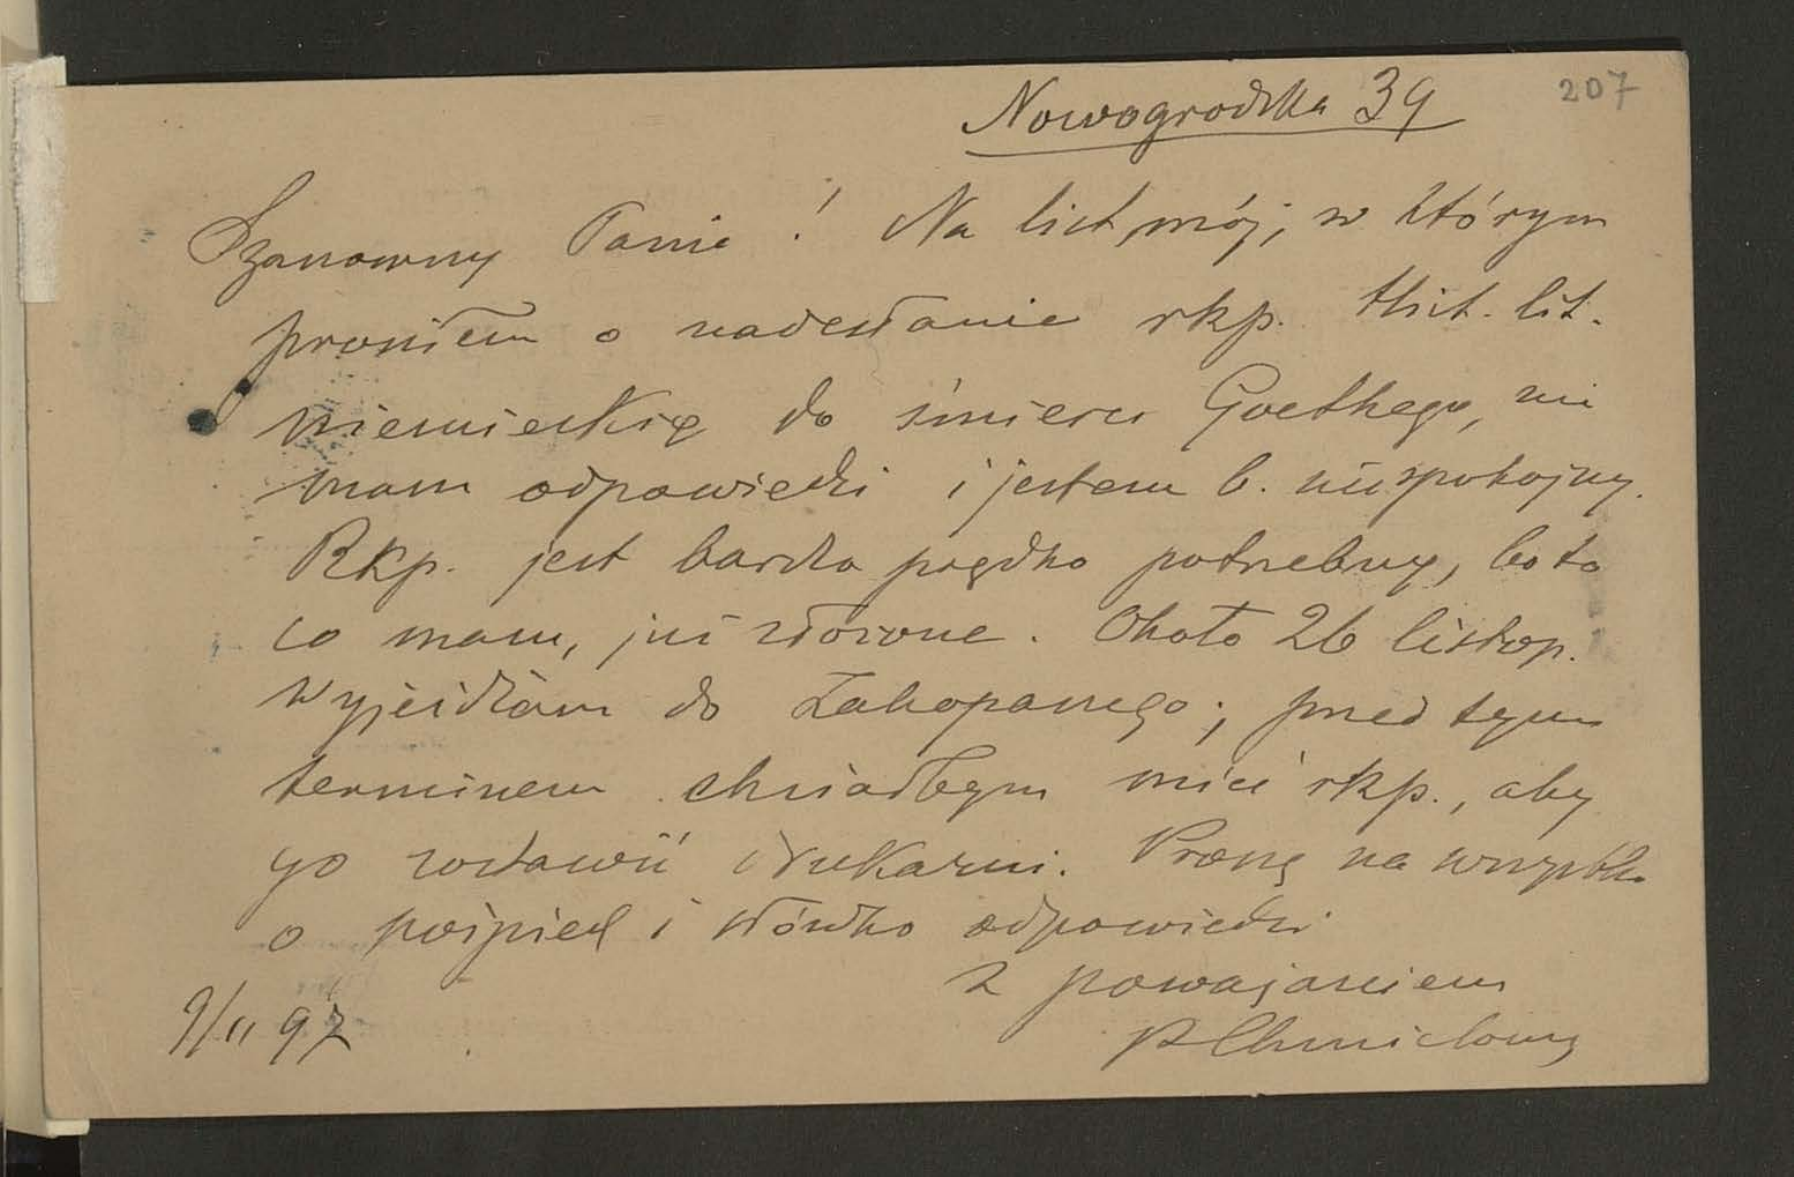 207
Nowogrodzka 39
Szanowny Panie! Na list mój, w którym
prosiłem o nadesłanie rkp. Hist. lit.
niemieckiej do śmierci Goethego, nie
mam odpowiedzi i jestem b. niespokojny.
Rkp. jest bardzo prędko potrzebny, bo to
co mam, już złożone. Około 26 listop.
wyjeżdżam do Zakopanego; przed tym
terminem chciałbym mieć rkp., aby
go zostawić drukarni. Proszę na wszystko
o pośpiech i słówko odpowiedzi
z poważaniem
PChmielowski
9/11 97